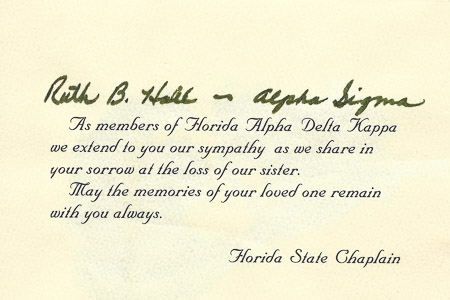 Ruth B. Hall ~ Alpha Sigma
As members of Florida Alpha Delta Kappa
we extend to you our sympathy as we share in
your sorrow at the loss of our sister.
May the memories of your loved one remain
with you always.
Florida State Chaplain